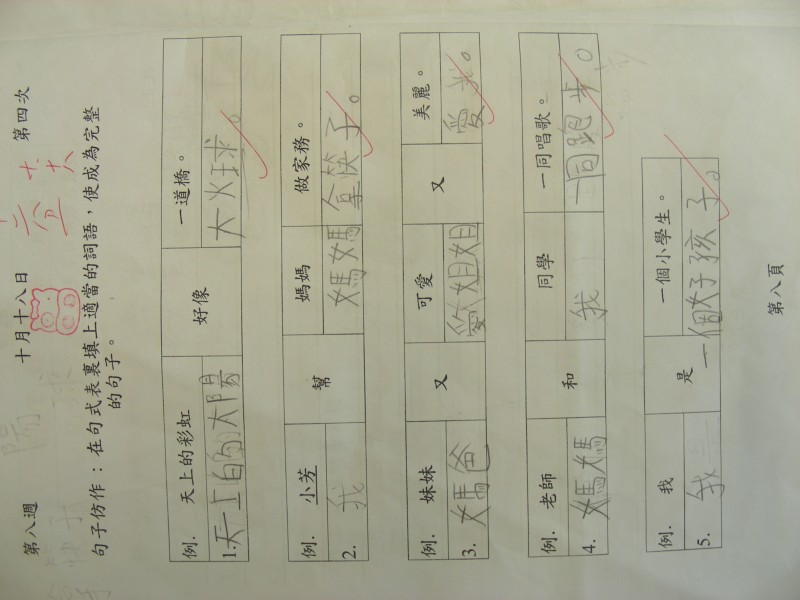 第八週 十月十八日 第四次
句子仿作：在句式表裏填上適當的詞語，使成為完整
的句子。
例. 天上的彩虹 好像 一道橋。
1. 天上的太陽 大火球。
例. 小芳 幫 媽媽 做家務。
2. 我 媽媽 拿筷子。
例. 妹妹 又 可愛 又 美麗。
3. 媽爸 愛姐姐 愛我。
例. 老師 和 同學 一同唱歌。
4. 媽媽 我 一同跑步。
例. 我 是 一個小學生。
5. 我 一個好孩子。
第八頁